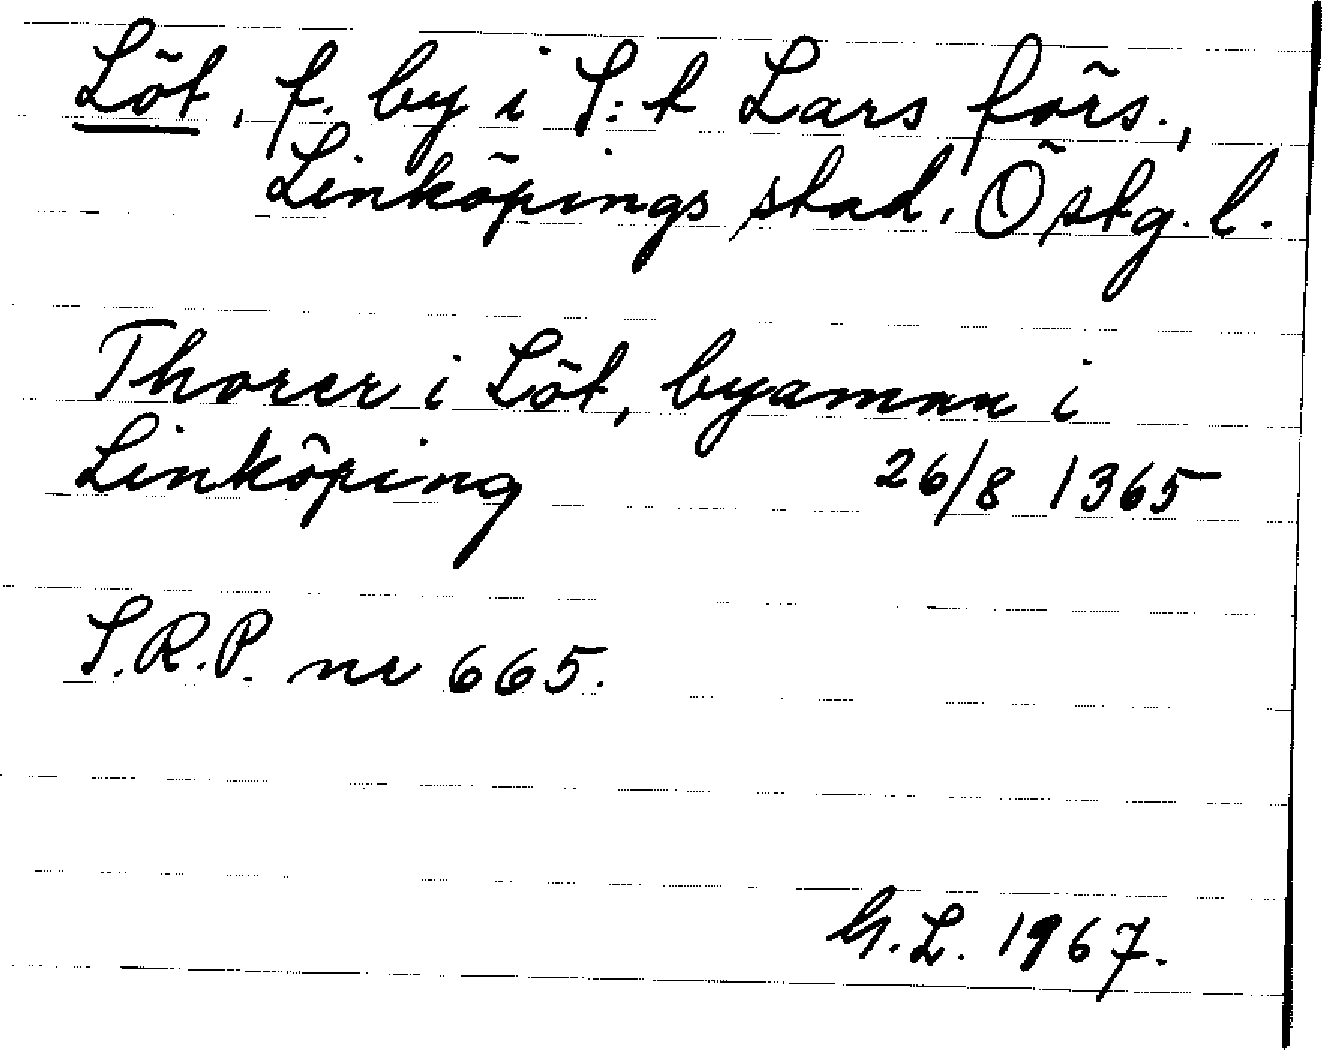 Löt, f. by i S:t Lars förs.,
Linköpings stad, Östg. l.
Thorer i Löt, byamnn i
Linköping 26/8 1365
S.R.P. nr 665.
G.L. 1967.